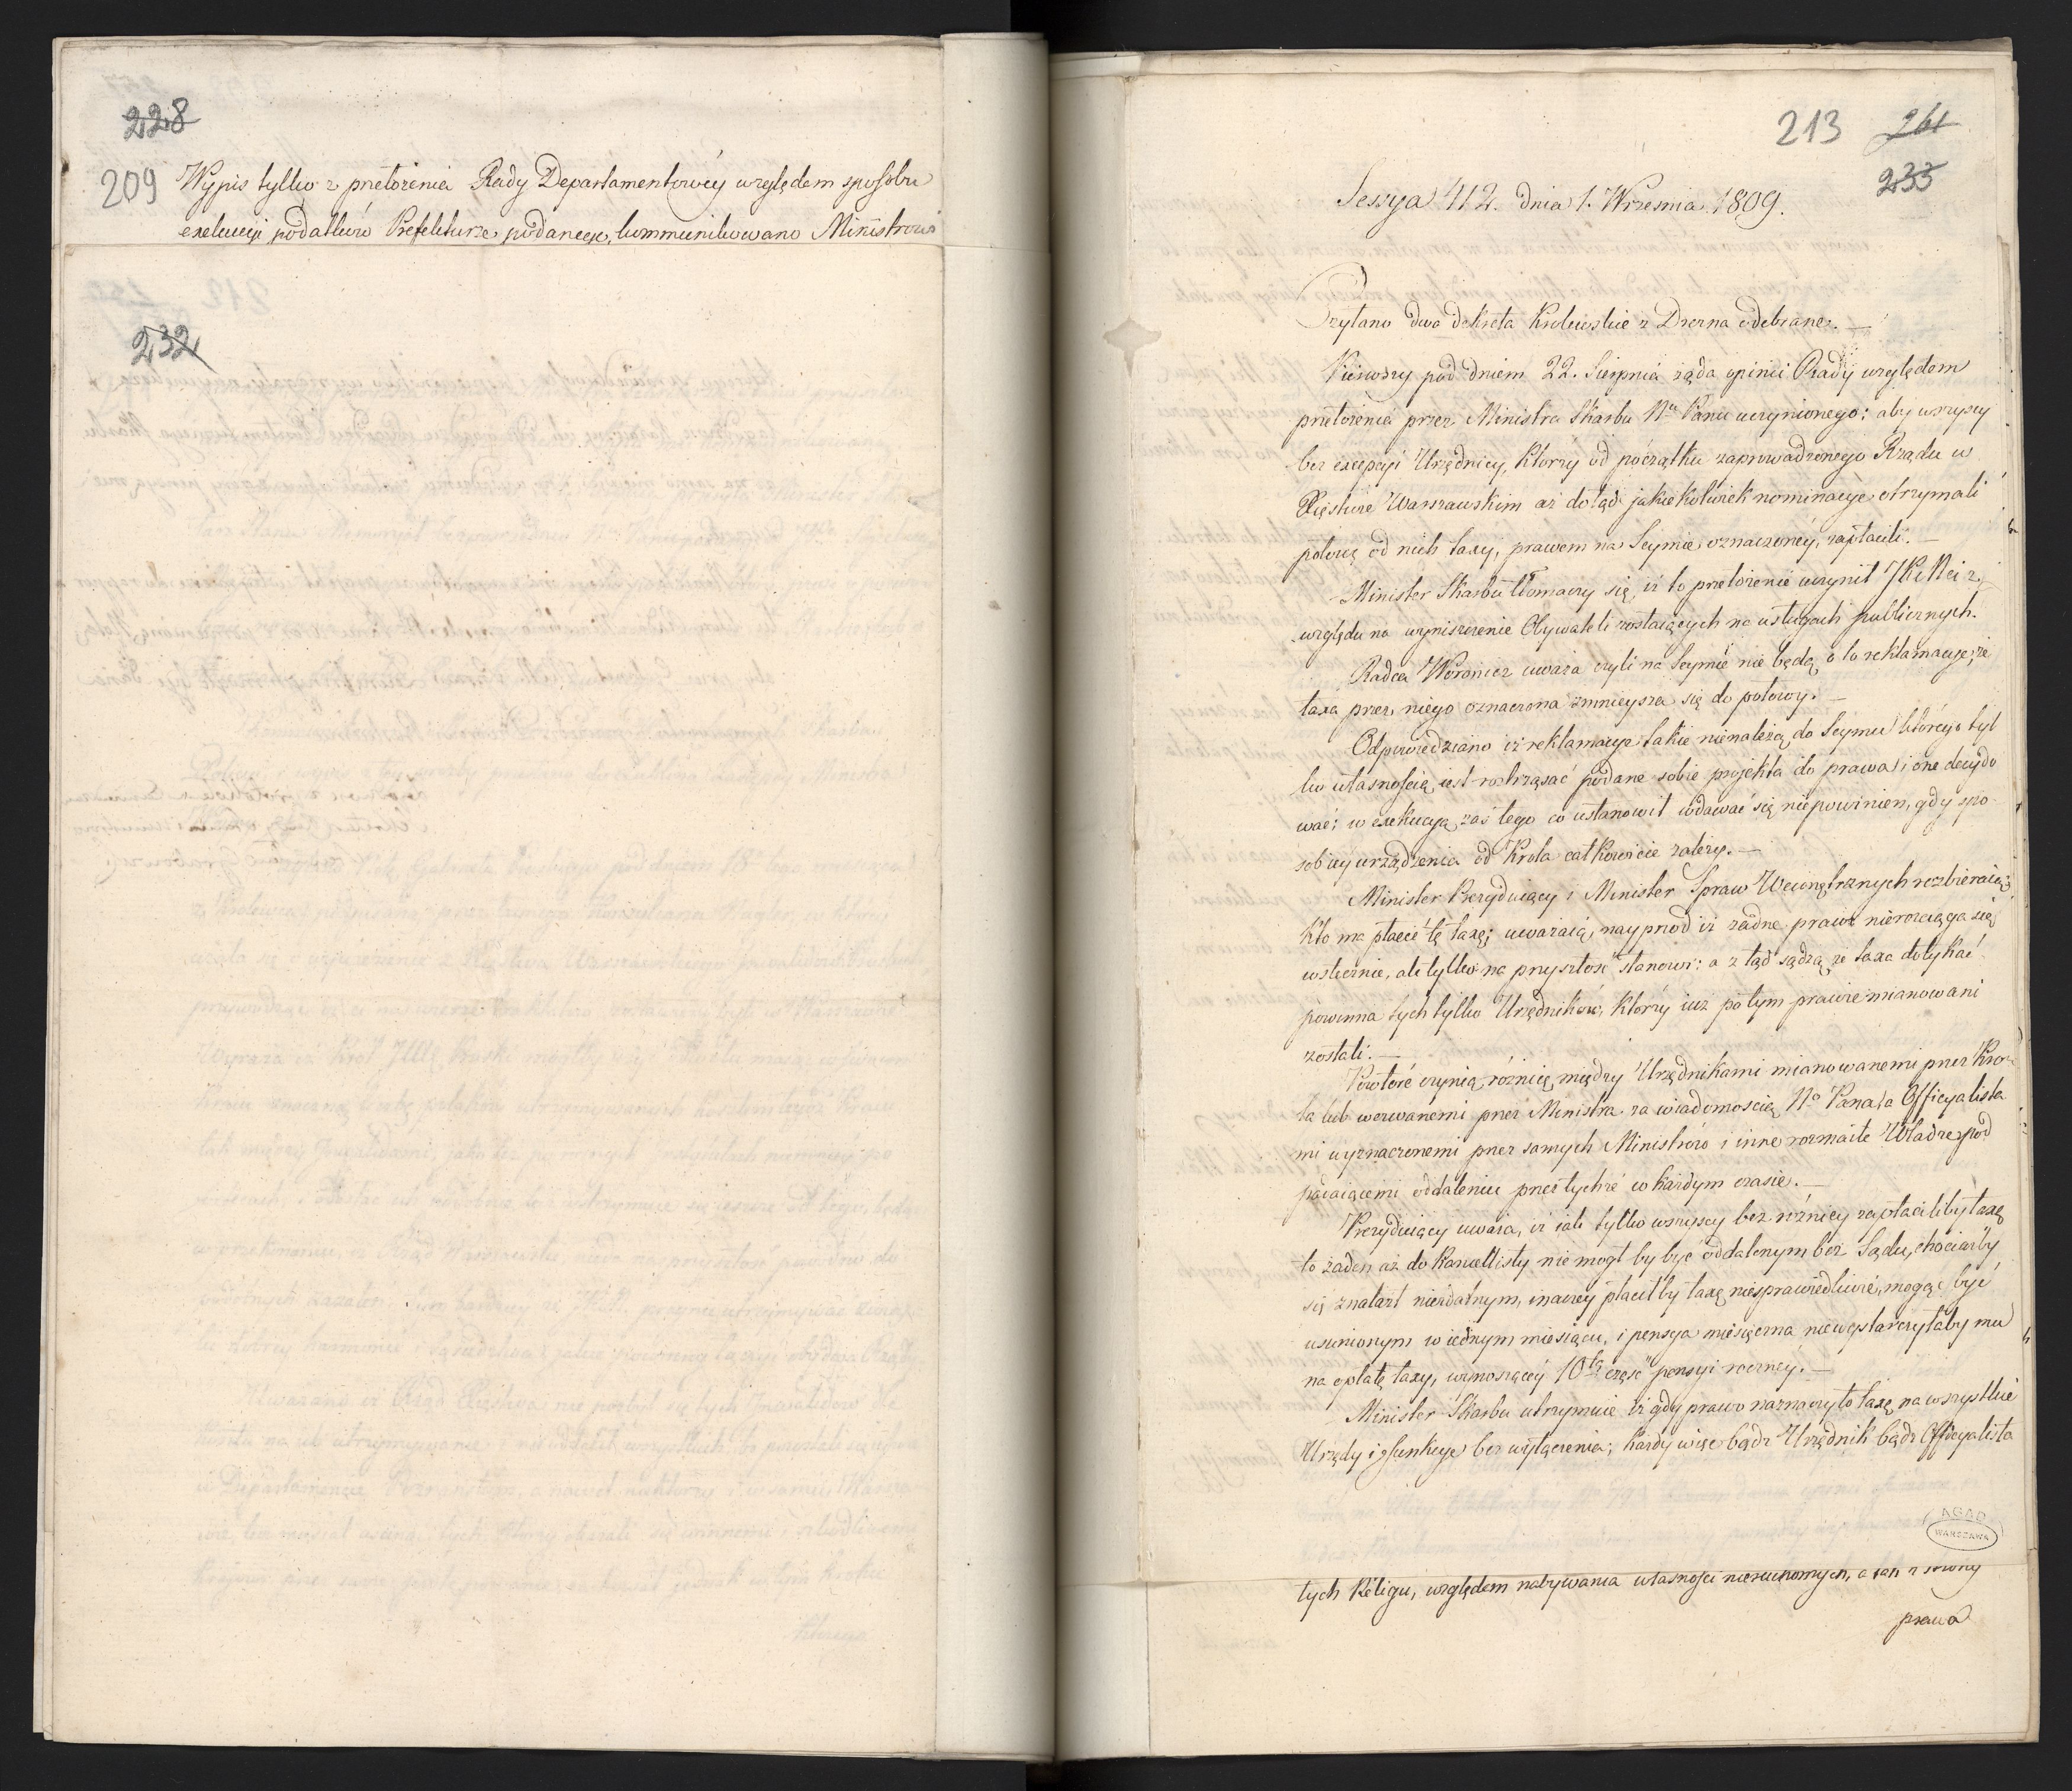 228
209 Wypis tylko z przełożenia Rady Departamentowey względem sposobu
exekucyi podatków Prefekturze podanego, kommunikowano Ministrowi
232
213 261
233
Sessya 412. dnia 1. Września 1809.
Czytano dwa dekreta Krolewskie z Drezna odebrane. —
Pierwszy pod dniem 22. Sierpnia żąda opinii Rady względem
przełożenia przez Ministra Skarbu Nu Panu uczynionego: aby wszyscy
bez excepcyi Urzędnicy, którzy od początku zaprowadzonego Rządu w
Xięstwie Warszawskim aż dotąd jakiekolwiek nominacye otrzymali
połowę od nich taxy, prawem na Seymie oznaczoney, zapłacili. —
Minister Skarbu tłomaczy się, iż to przełożenie uczynił JKMci z
względu na wyniszczenie Obywateli zostaiących na usługach publicznych.
Radca Woronicz uważa czyli na Seymie nie będą o to reklamacye, że
taxa przez niego oznaczona zmnieysza się do połowy. —
Odpowiedziano iż reklamacye takie nienależą do Seymu którego tyl
ko własnością iest roztrząsać podane sobie projekta do prawa i one decydo
wać; w exekucyą zaś tego co ustanowił wdawać się niepowinien, gdy spo
sob iey urządzenia od Krola całkowicie zależy. —
Minister Prezyduiący i Minister Spraw Wewnętrznych rozbieraiąc
kto ma płacić tę taxę; uważaią, nayprzod iż żadne prawo nierozciąga się
wstecznie, ale tylko na przyszłość stanowi: a z tąd sądzą, że taxa dotykać
powinna tych tylko Urzędników, którzy iuż po tym prawie mianowani
zostali. —
Powtóre czynią róznicę między Urzędnikami mianowanemi przez Kro-
la lub wezwanemi przez Ministra za wiadomością No Pana, a Officyalista
mi wyznaczonemi przez samych Ministrów i inne rozmaite Władze, pod
padaiącemi oddaleniu przez tychże w każdym czasie. —
Prezyduiący uważa, iż iak tylko wszyscy bez różnicy zapłaciliby taxę
to żaden aż do Kancellisty nie mogł by być oddalonym bez Sądu, chociażby
się znalazł niezdatnym, inaczey płacił by taxę niesprawiedliwie, mogąc być
usunionym w iednym miesiącu, i pensya miesięczna niewystarczyłaby mu
na opłatę taxy, wynoszącey 10tą część pensyi roczney. —
Minister Skarbu utrzymuie iż gdy prawo naznaczyło taxę na wszystkie
Urzędy i funkcye bez wyłączenia; każdy więc bądź Urzędnik bądź Officyalista
AGAD
WARSZAWA
tych Religii, względem nabywania własności nieruchomych, a tak z rowny
prawa